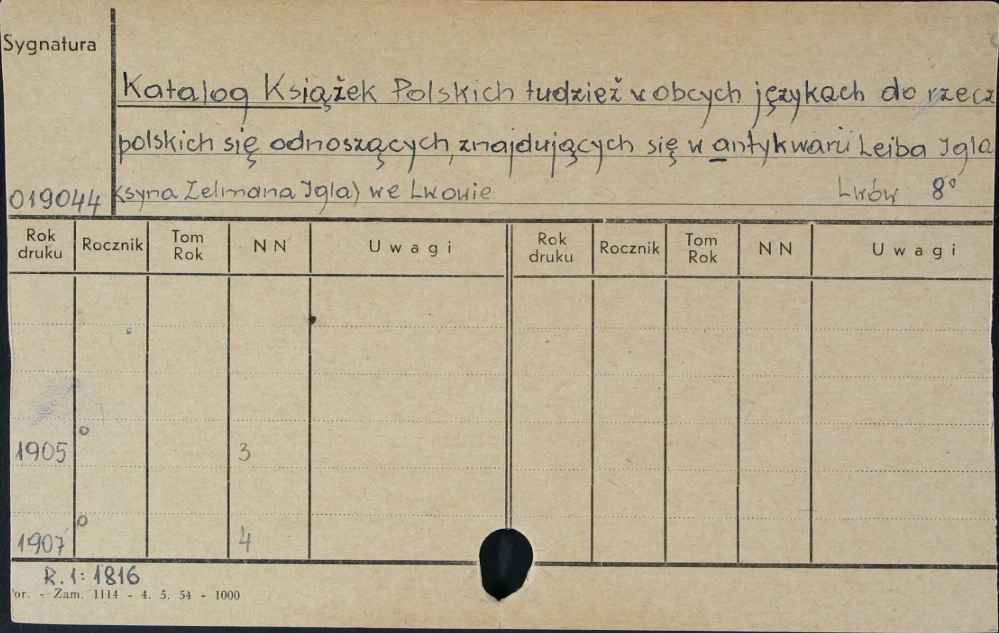 Sygnatura
Katalog Książek Polskich tudzież w obcych językach do rzecz
polskich się odnoszących, znajdujących się w antykwarii Leiba Igla
019044 (syna Zelmana Igla) we Lwowie Lwów 8°
Rok druku Rocznik Tom Rok NN Uwagi Rok druku Rocznik Tom Rok NN Uwagi
1905 3
1907 4
R. 1: 1816
or. - Zam. 1114 - 4. 5. 54 - 1000